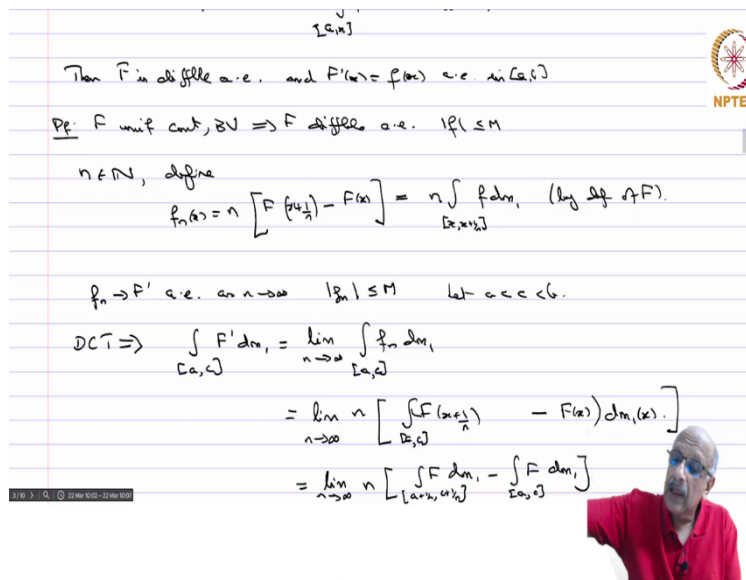 [a,x]
Then F is diffble a.e. and F'(x) = f(x) a.e. in [a,b]
Pf: F unif cont, BV ⇒ F diffble a.e. |f| ≤ M
n ∈ ℕ, define
fₙ(x) = n [F(x+1/n) − F(x)] = n ∫_[x,x+1/n] f dm₁ (by def of F).
fₙ → F' a.e. as n→∞ |fₙ| ≤ M Let a<c<b.
DCT ⇒ ∫_[a,c] F' dm₁ = lim_{n→∞} ∫_[a,c] fₙ dm₁
= lim_{n→∞} n [ ∫_[a,c] (F(x+1/n) − F(x)) dm₁(x). ]
= lim_{n→∞} n [ ∫_[a+1/n, c+1/n] F dm₁ − ∫_[a,c] F dm₁ ]
NPTE
3/10 22 Mar 10:02 - 22 Mar 10:07